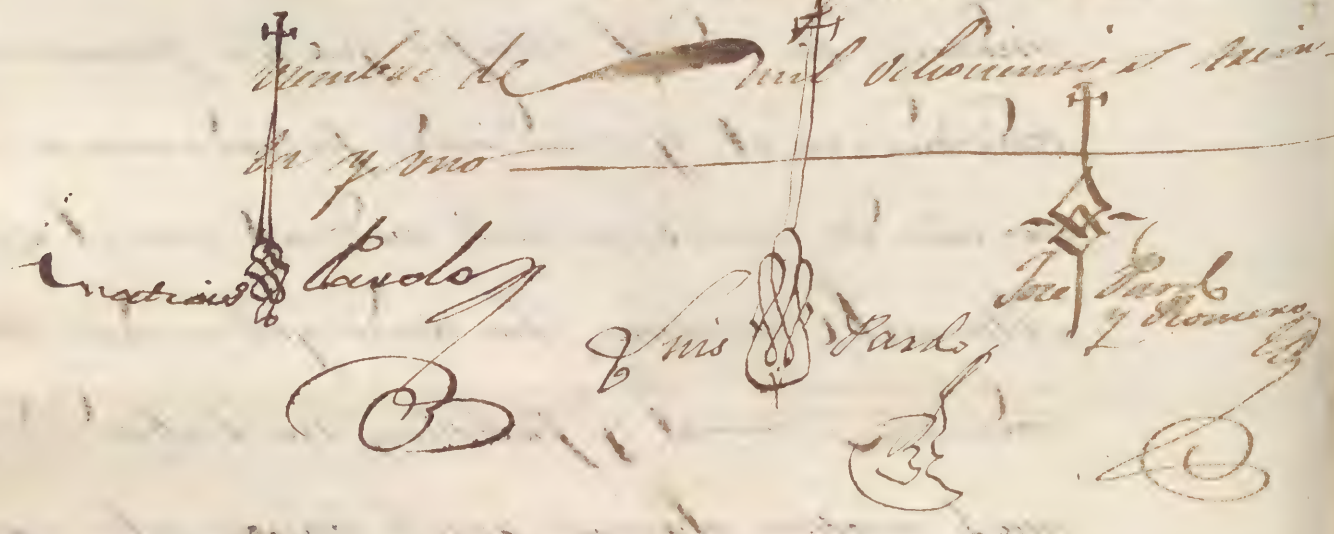 viembre de mil ochocientos trein-
ta y uno
Matias Pardo
Luis Pardo
Jose Pardo
y Romero